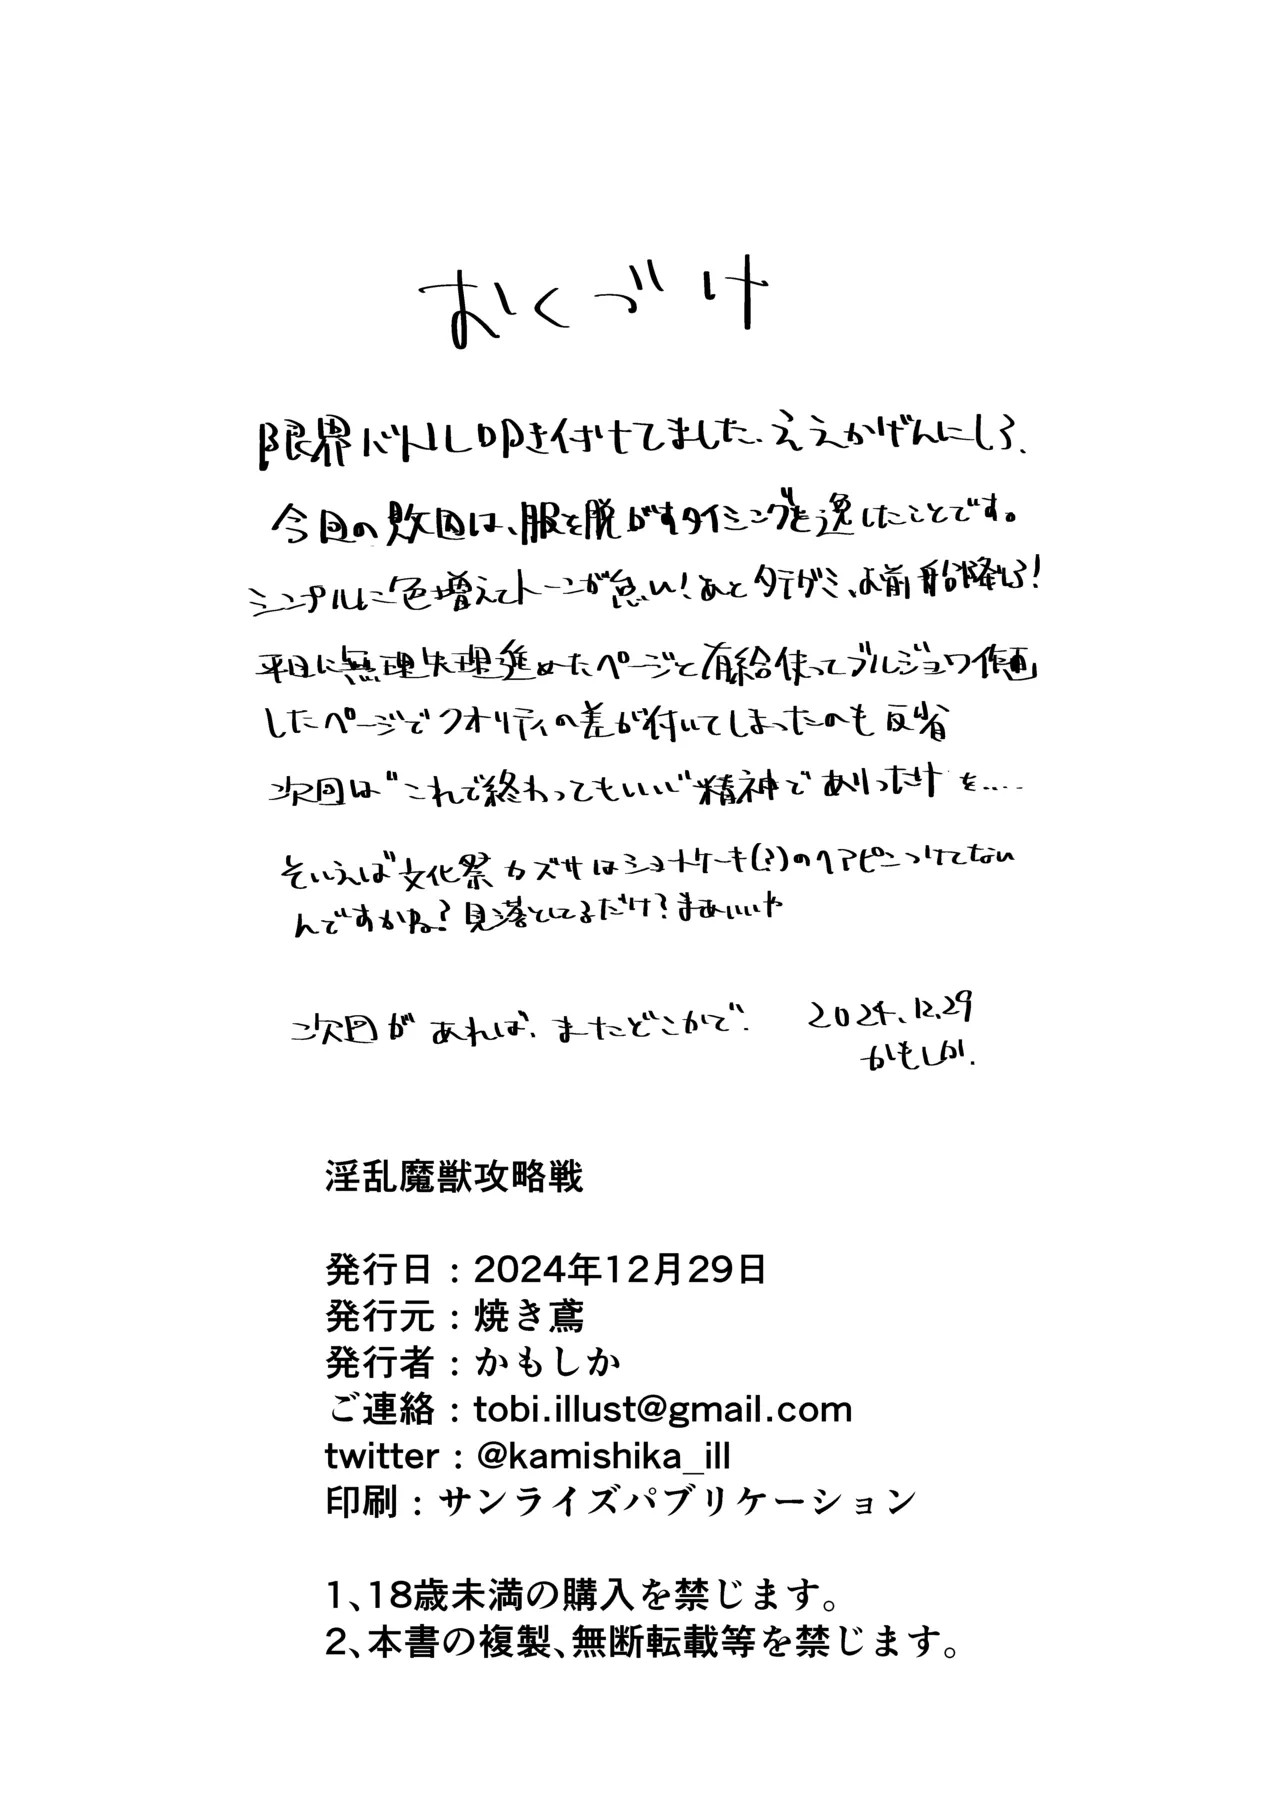 おくづけ
限界バトル叩き付けてました。ええかげんにしろ。
今回の敗因は、服を脱がすタイミングを逸したことです。
シンプルに色増えてトーンが怠い!あとタテガミ、お前船降りろ!
平日に無理矢理進めたページと有給使ってブルジョワ作画
したページでクオリティの差が付いてしまったのも反省
次回は"これで終わってもいい"精神でありったけを....
そいえば文化祭カズサはショートケーキ(?)のヘアピンつけてない
んですかね?見落としてるだけ?まあいいや
次回があれば、またどこかで。 2024.12.29
かもしか.
淫乱魔獣攻略戦
発行日:2024年12月29日
発行元:焼き鳶
発行者:かもしか
ご連絡:tobi.illust@gmail.com
twitter:@kamishika_ill
印刷:サンライズパブリケーション
1、18歳未満の購入を禁じます。
2、本書の複製、無断転載等を禁じます。